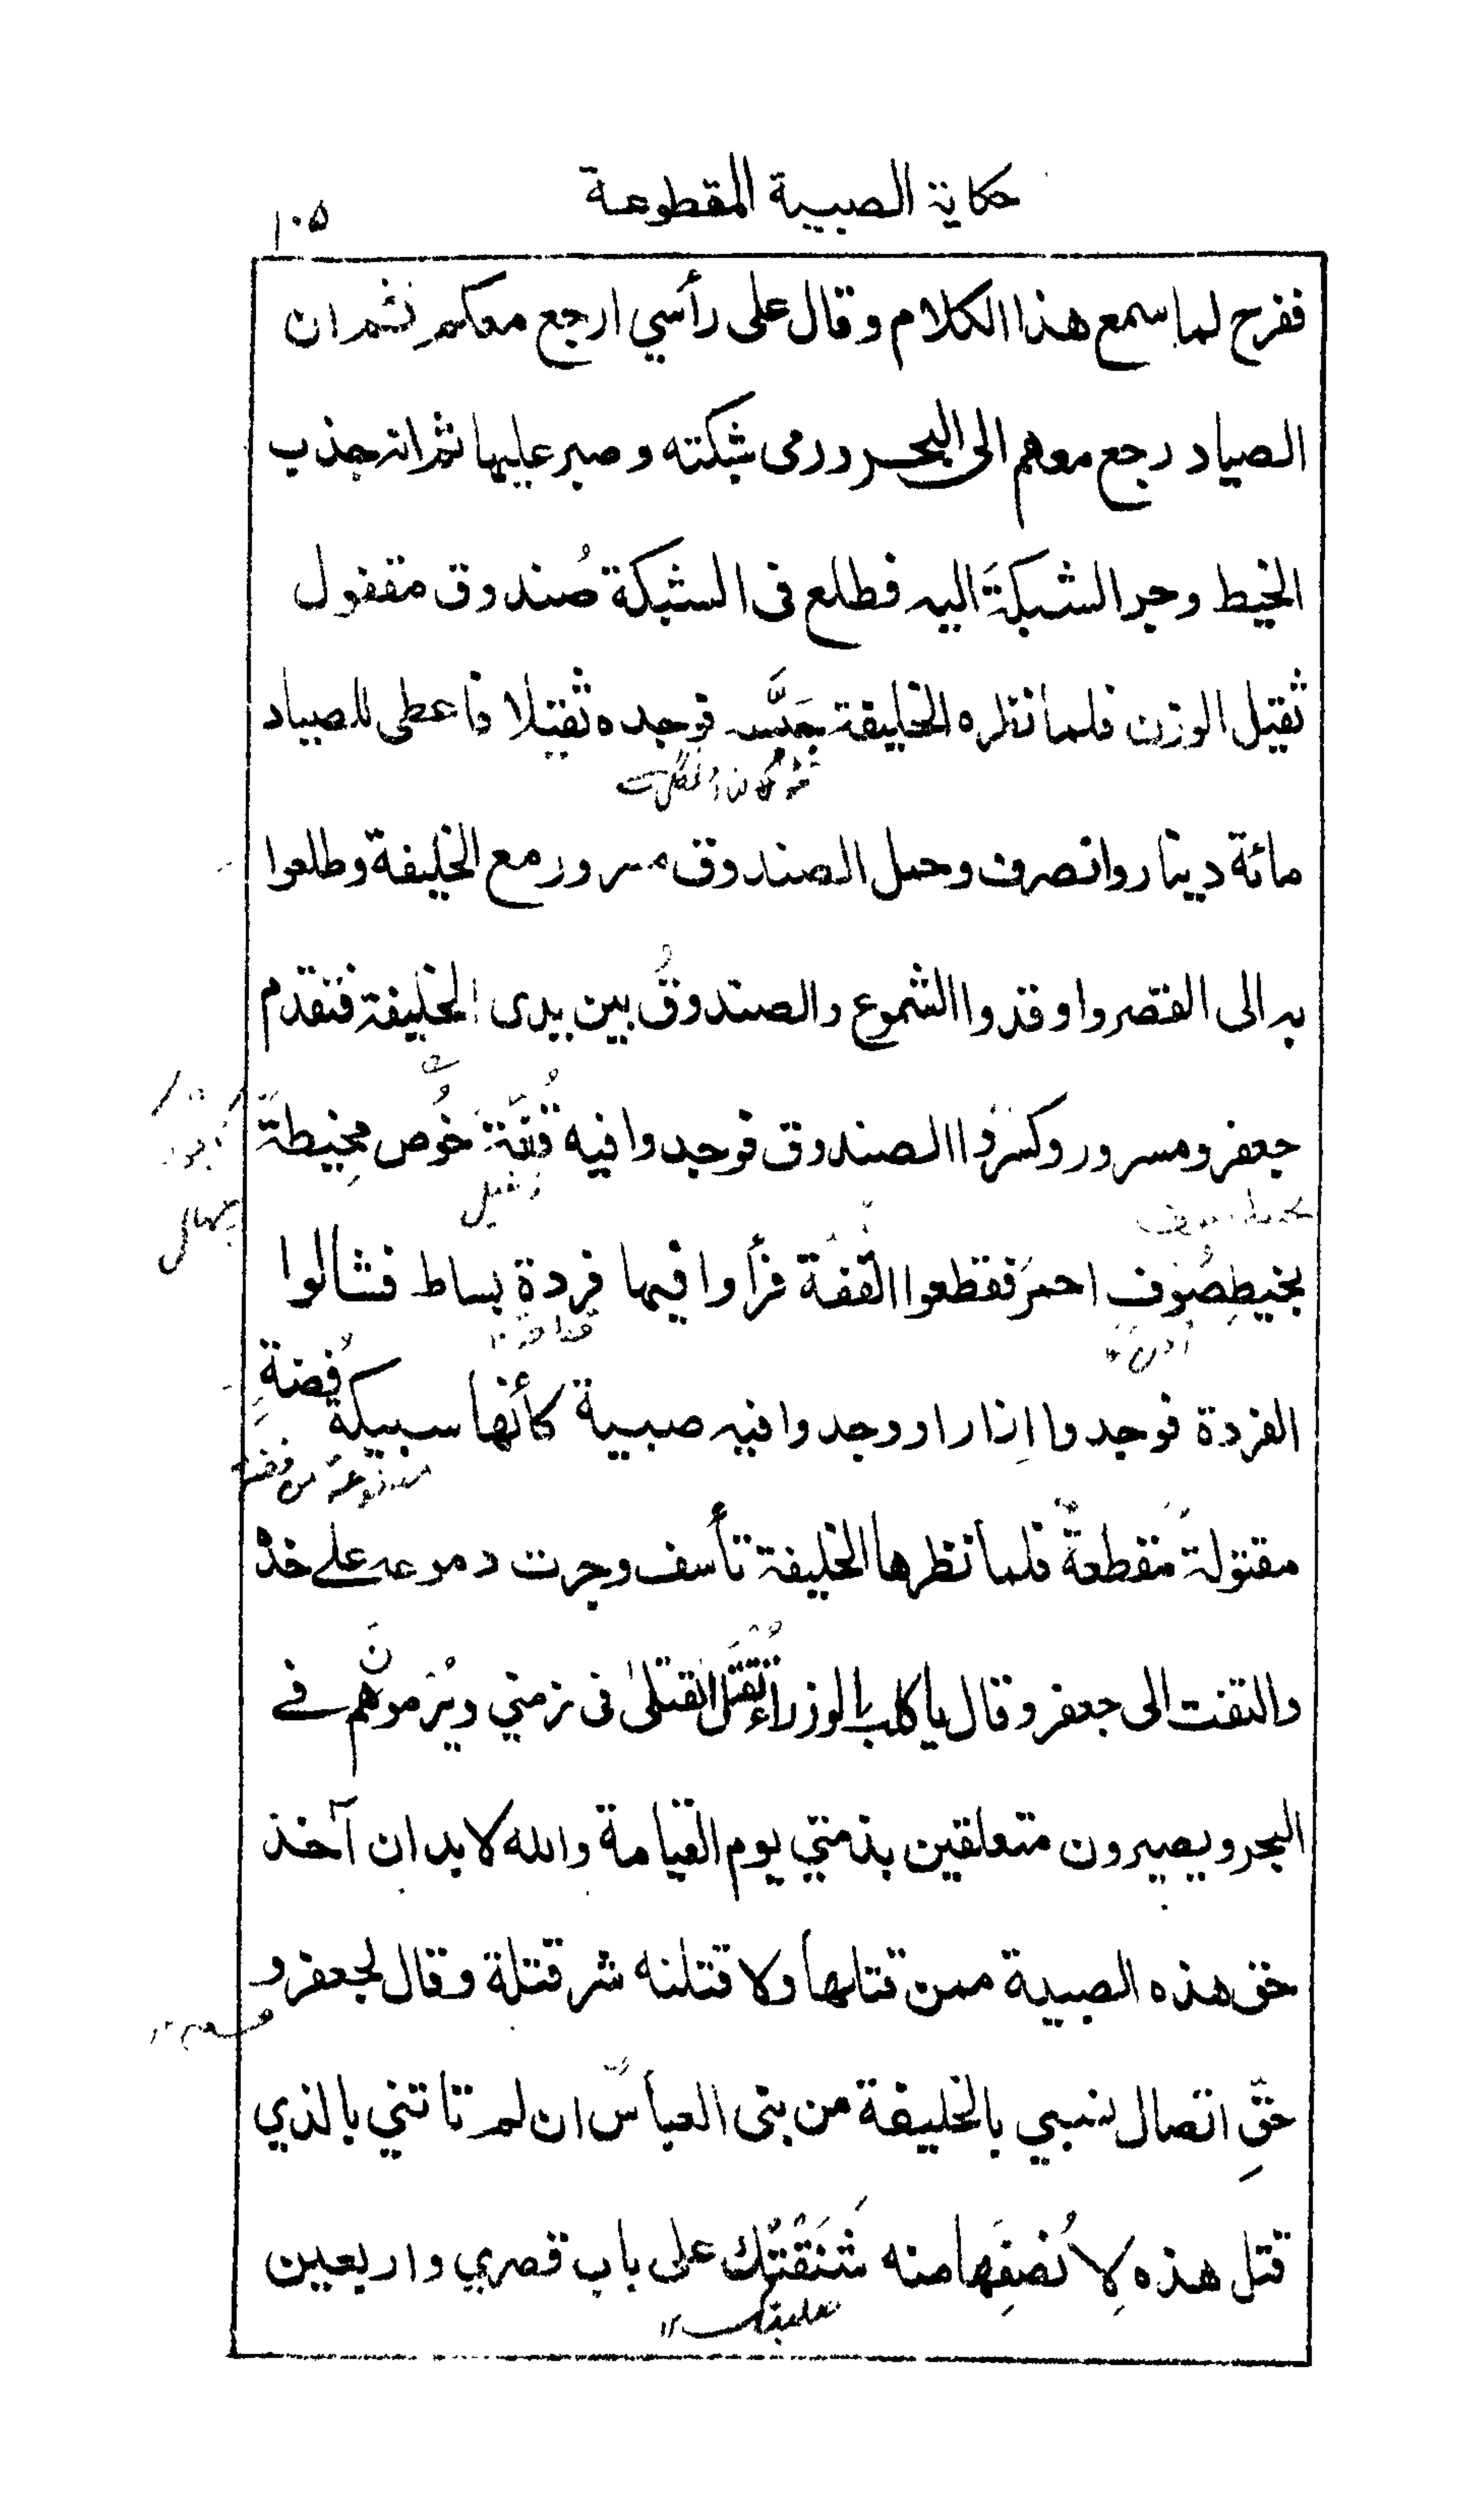 حكاية الصبية المقطوعة
١٠٥
ففرح لما سمع هذا الكلام وقال على رأسي ارجع معكم ثم ان
الصياد رجع معهم الى البحر ورمى شبكته وصبر عليها ثم انه جذب
الخيط وجر الشبكةَ اليه فطلع فى الشبكة صُندوق مقفول
ثقيل الوزن فلما نظره الخليفة جَسَّه فوجده ثقيلا فاعطى للصياد
مائة دينار وانصرف وحمل الصندوق مسرور مع الخليفة وطلعوا
به الى القصر واوقدوا الشموع والصندوقُ بين يدى الخليفة فتقدم
جعفر ومسرور وكسرَوا الصندوق فوجدوا فيه قُفَّةَ خُوص مخِيطةً
زنبيل
بخيطِ صُوفٍ احمرَ فقطعوا القفة فرأوا فيها فردةِ بساط فشالوا
الفردة فوجدوا اِزارا ووجدوا فيه صبية كأنّها سبيكة فِضةٍ
مقتولةً مُقطعةً فلما نظرها الخليفة تأسف وجرت دموعه على خده
والتفت الى جعفر وقال ياكلب الوزراءِ تُقتَل القتلىٰ فى زمني ويُرمونَهم فے
البحر ويصيرون متعلقين بذمتي يوم القيامة والله لابد ان آخذ
حق هذه الصبية ممن قتلها ولاقتلنه شر قتلة وقال لجعفر و
حقِّ اتصال نسبي بالخليفة من بنى العباس ان لم تاتني بالذي
قتل هذه لِاُنصفِهَا منه شَنَقْتُك على باب قصري واربعين